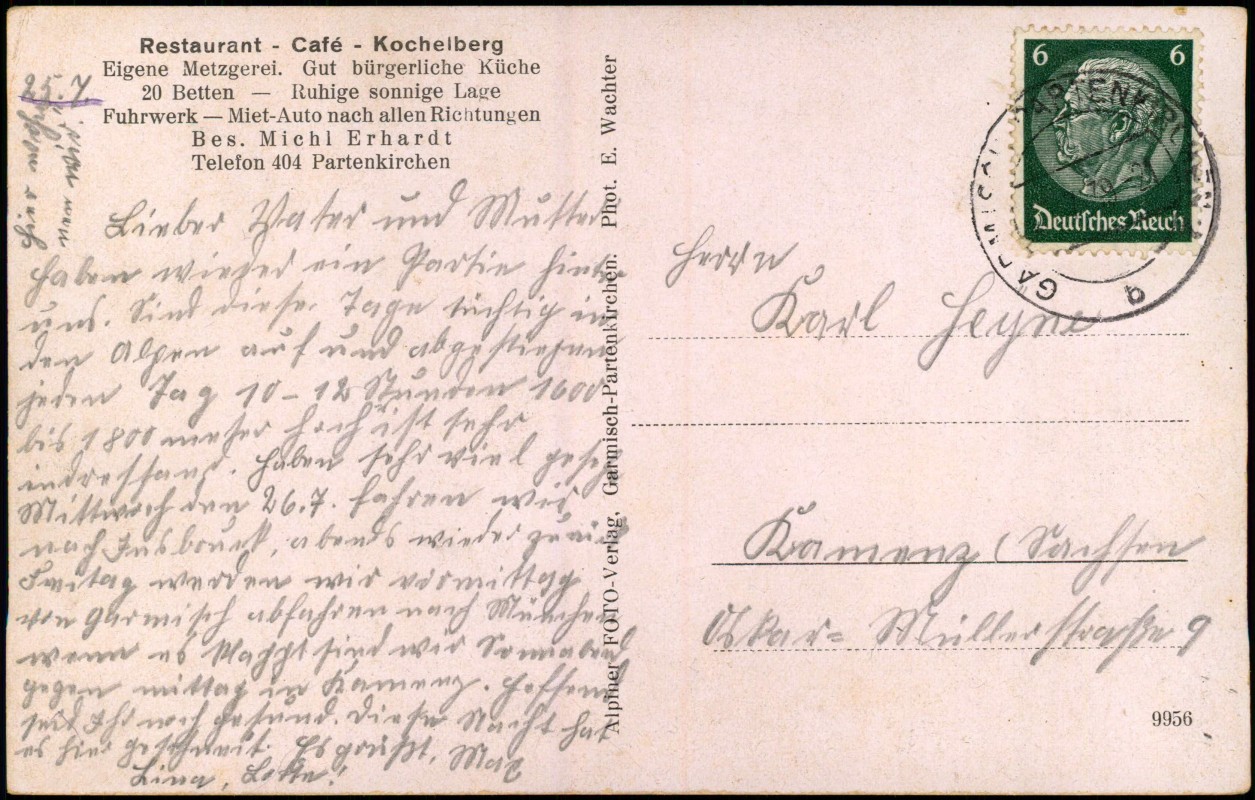 Restaurant - Café - Kochelberg
Eigene Metzgerei. Gut bürgerliche Küche
20 Betten — Ruhige sonnige Lage
Fuhrwerk — Miet-Auto nach allen Richtungen
Bes. Michl Erhardt
Telefon 404 Partenkirchen
25.7
Lieber Vater und Mutter
haben wieder ein Partie hinter
uns. Sind diese Tage tüchtig in
den Alpen auf und abgestiegen
jeden Tag 10 – 12 Stunden 1600
bis 1800 meter hoch ist sehr
indressand. Haben sehr viel geseh
Mittwoch den 26.7. fahren wir
nach Insbruck, abends wieder zurück
Freitag werden wir vormittag
von Garmisch abfahren nach München
wenn es klappt sind wir Sonnabend
gegen mittag in Kamenz. Hoffend
seid Ihr noch gesund. Diese Nacht hat
es hier geschneit. Es grüßt, Max
Lina, Lotte!
Alpiner FOTO-Verlag, Garmisch-Partenkirchen. Phot. E. Wachter
6 6
Deutsches Reich
GARMISCH-PARTENKIRCHEN
q
Herrn
Karl Heyne
Kamenz (Sachsen
Oskar-Müllerstraße 9
9956